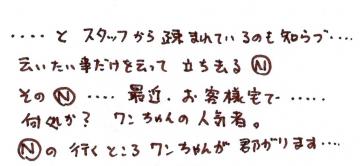 ‥‥ と スタッフから 疎まれているのも知らづ‥‥
云いたい事だけを云って 立ち去る Ⓝ
その Ⓝ ‥‥ 最近、お客様宅で ‥‥‥
何くれか? ワンちゃんの人気者。
Ⓝの 行くところ ワンちゃんが 群がります‥‥